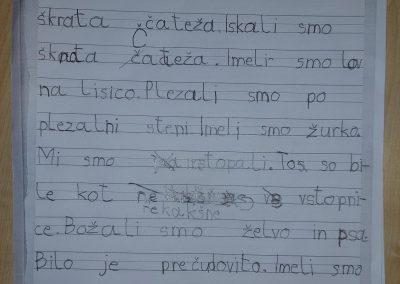 škrata Čateža. Iskali smo
škrata čateža. Imeli smo lov
na lisico. Plezali smo po
plezalni steni. Imeli smo žurko.
Mi smo vstopali. Tos so bi-
le kot nekakšne vstopni-
ce. Božali smo želvo in psa.
Bilo je prečudovito. Imeli smo